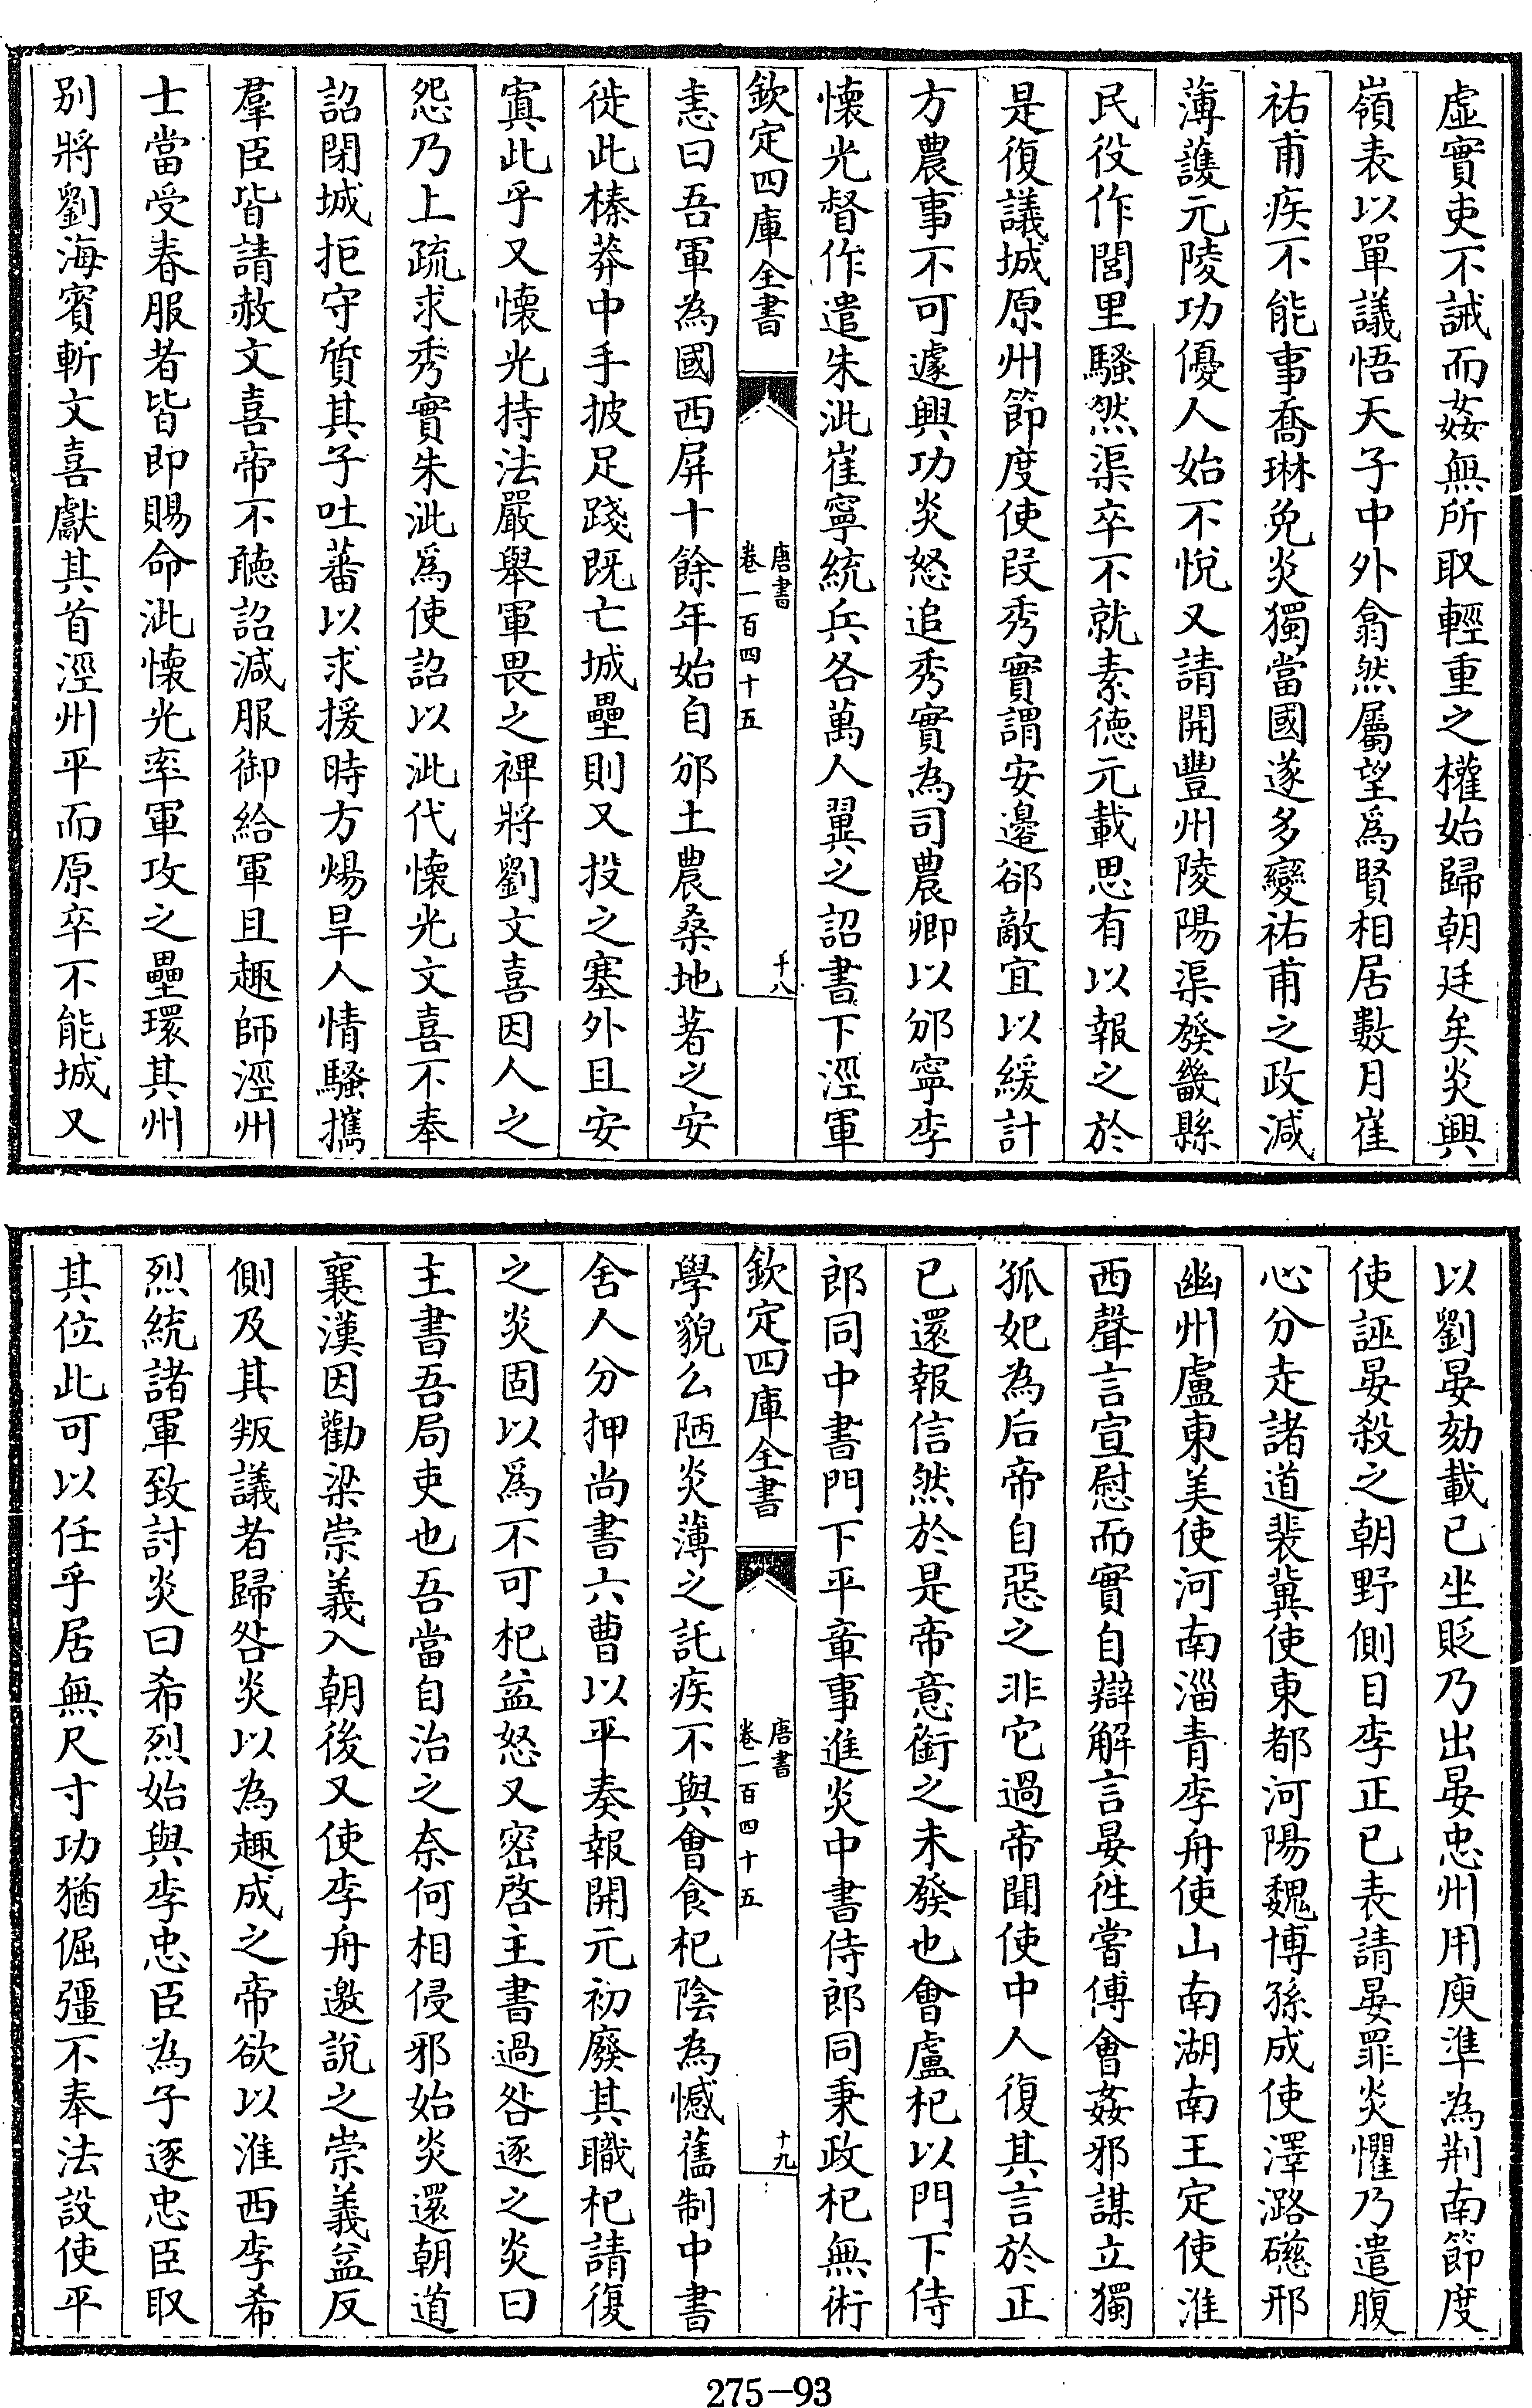 虛實吏不誡而姦無所取輕重之權始歸朝廷矣炎興
嶺表以單議悟天子中外翕然屬望爲賢相居數月崔
祐甫疾不能事喬琳免炎獨當國遂多變祐甫之政減
薄護元陵功優人始不悅又請開豐州陵陽渠發畿縣
民役作閭里騷然渠卒不就素德元載思有以報之於
是復議城原州節度使段秀實謂安邉郤敵宜以緩計
方農事不可遽興功炎怒追秀實為司農卿以邠寧李
懐光督作遣朱泚崔寧統兵各萬人翼之詔書下涇軍
欽定四庫全書
唐書
卷一百四十五
十八
恚曰吾軍為國西屏十餘年始自邠土農桑地著之安
徙此榛莽中手披足踐既亡城壘則又投之塞外且安
寘此乎又懐光持法嚴舉軍畏之禆將劉文喜因人之
怨乃上疏求秀實朱泚爲使詔以泚代懐光文喜不奉
詔閉城拒守質其子吐蕃以求援時方煬旱人情騷攜
羣臣皆請赦文喜帝不聴詔減服御給軍且趣師涇州
士當受春服者皆即賜命泚懐光率軍攻之壘環其州
别將劉海賓斬文喜獻其首涇州平而原卒不能城又
以劉晏劾載已坐貶乃出晏忠州用庾準為荆南節度
使誣晏殺之朝野側目李正已表請晏罪炎懼乃遣腹
心分走諸道裴冀使東都河陽魏博孫成使澤潞磁邢
幽州盧東美使河南淄青李舟使山南湖南王定使淮
西聲言宣慰而實自辯解言晏徃嘗傅會姦邪謀立獨
狐妃為后帝自惡之非它過帝聞使中人復其言於正
已還報信然於是帝意銜之未發也會盧杞以門下侍
郎同中書門下平章事進炎中書侍郎同秉政杞無術
欽定四庫全書
唐書
卷一百四十五
十九
學貌么陋炎薄之託疾不與會食杞陰為憾舊制中書
舍人分押尚書六曹以平奏報開元初廢其職杞請復
之炎固以爲不可杞益怒又密啓主書過咎逐之炎曰
主書吾局吏也吾當自治之奈何相侵邪始炎還朝道
襄漢因勸梁崇義入朝後又使李舟邀說之崇義益反
側及其叛議者歸咎炎以為趣成之帝欲以淮西李希
烈統諸軍致討炎曰希烈始與李忠臣為子逐忠臣取
其位此可以任乎居無尺寸功猶倔彊不奉法設使平
275-93